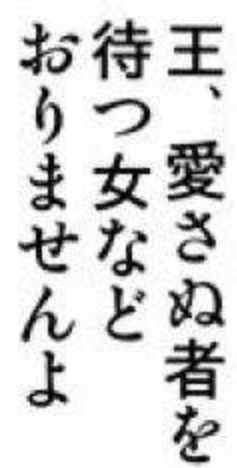 王、愛さぬ者を
待つ女など
おりませんよ